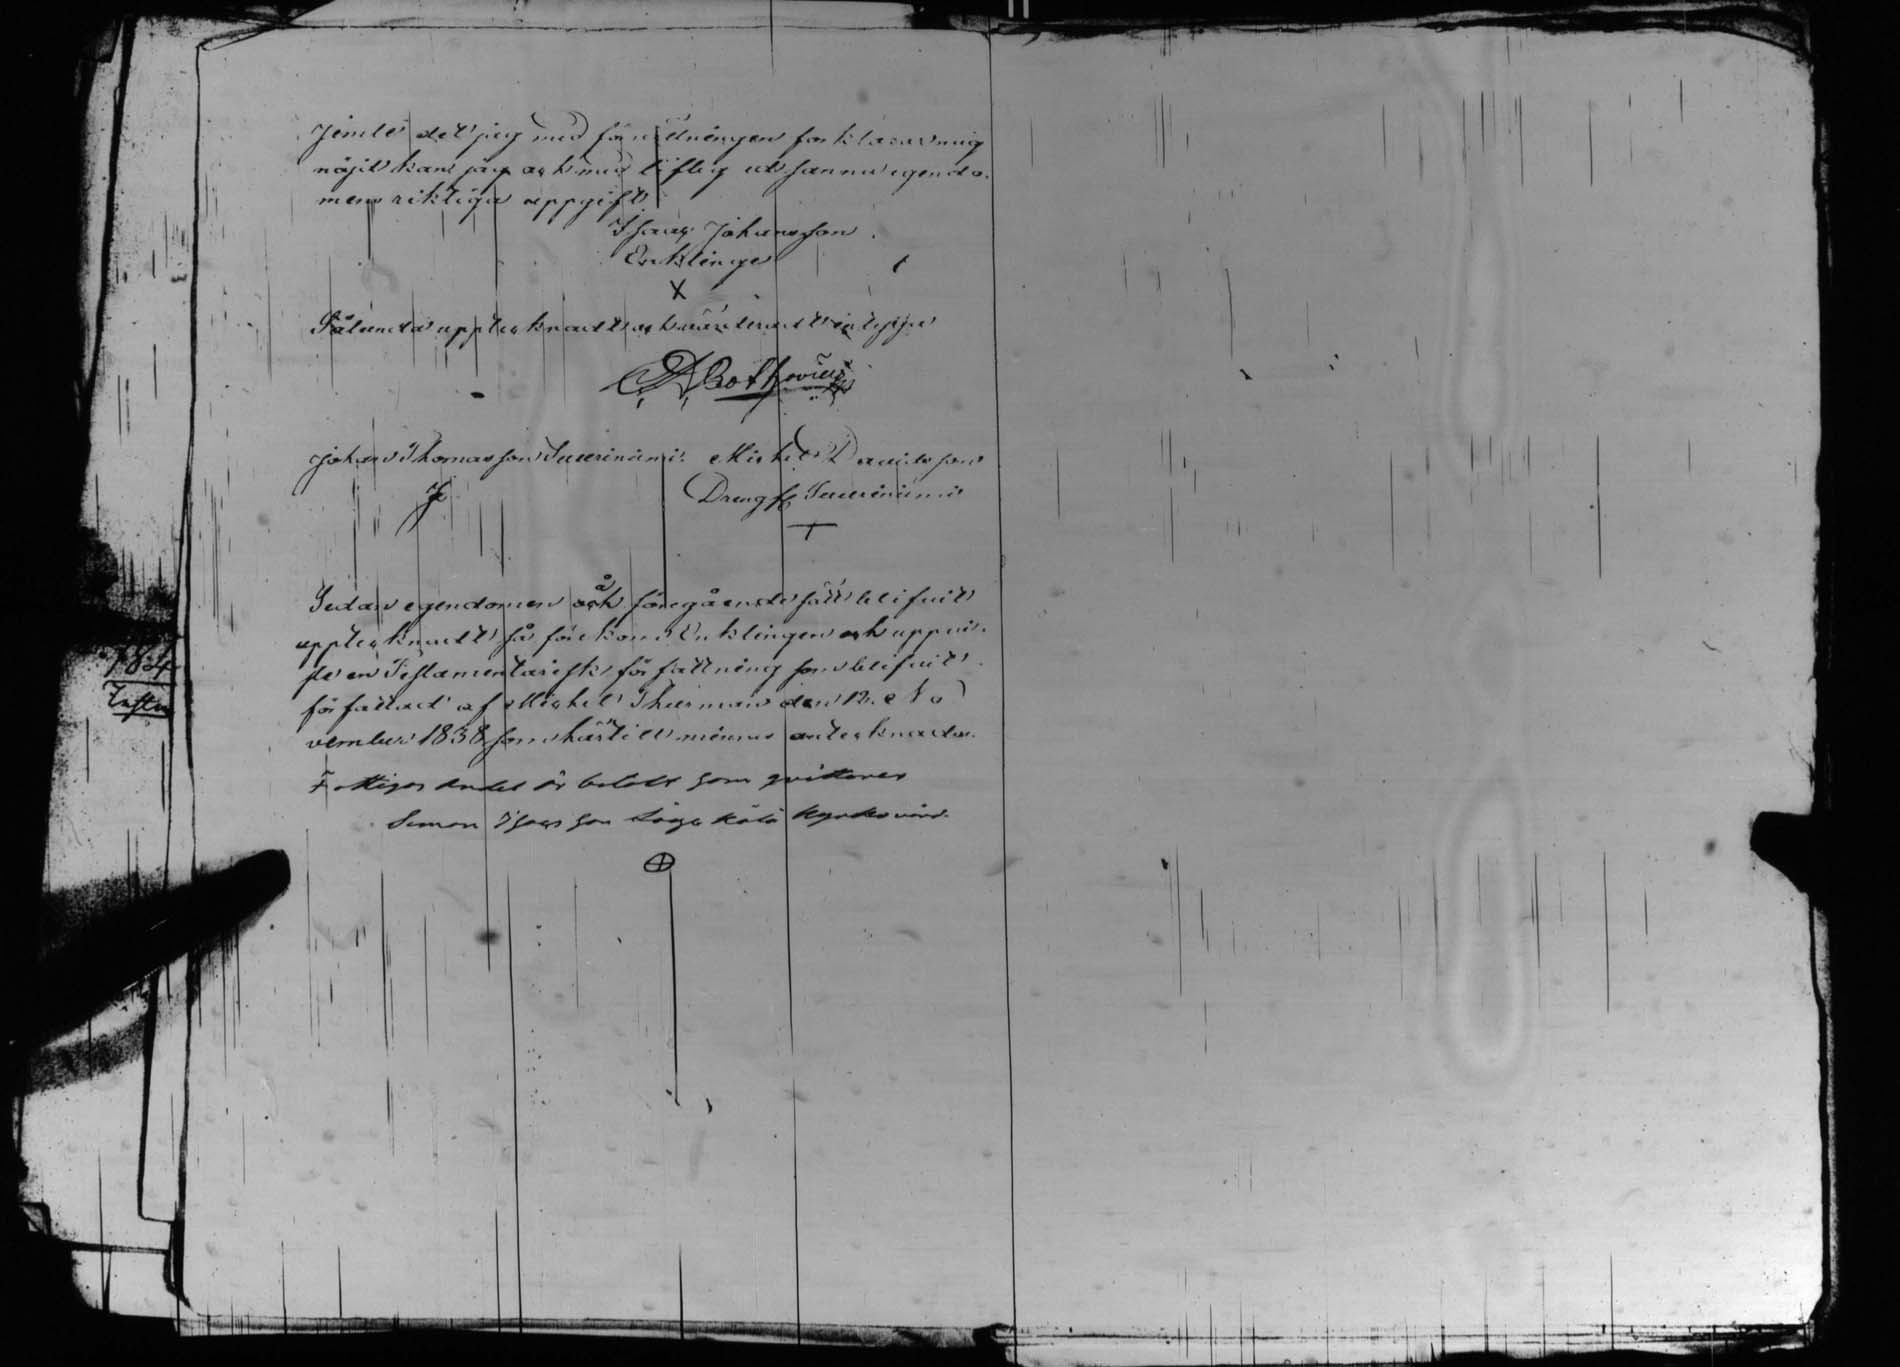 Jemte det jag med förrättningen förklarar mig
nöjd kan jag ock med liflig ed sanna egendo-
mens riktiga uppgift
Isaac Johansson
Enklinge
X
Sålunda upptecknadt och värderadt intyga
Johan Thomasson Suurinimi. Michel Davidsson
Dreng fr Suurinimi
Sedan egendomen å föregående sätt blifvit
upptecknadt så förekom Enklingen och uppvi-
ste en Testamentarisk författning som blifvit
författad af Michel Thurman den 12. No
vember 1838 som härtill minne antecknades.
Fattiges andel är betalt som qvitteras
Simon Isacsson Kyrkovärd.
184
Testm